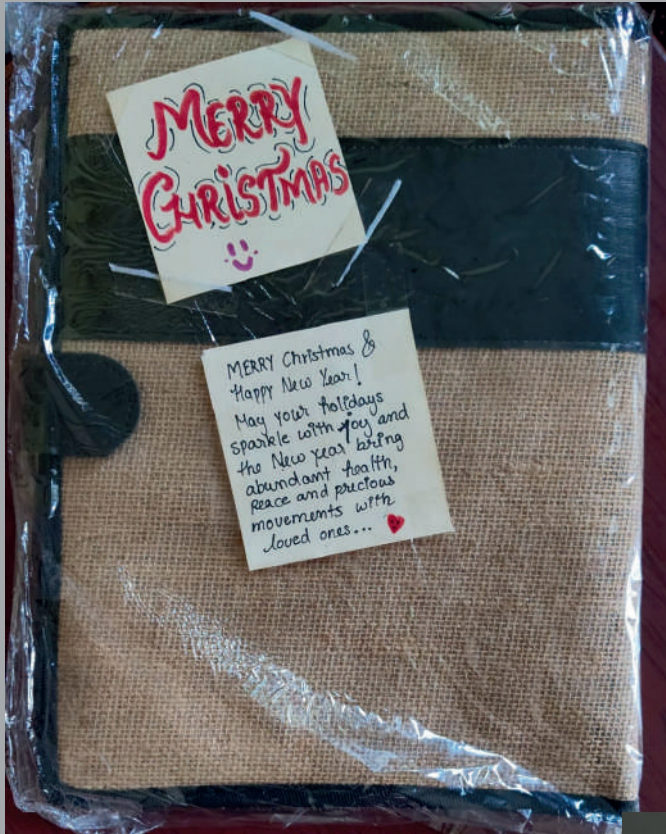 MERRY
CHRiSTMAS
MERRY Christmas &
Happy New Year!
May your holidays
sparkle with joy and
the New year bring
abundant health,
Peace and precious
movements with
loved ones...